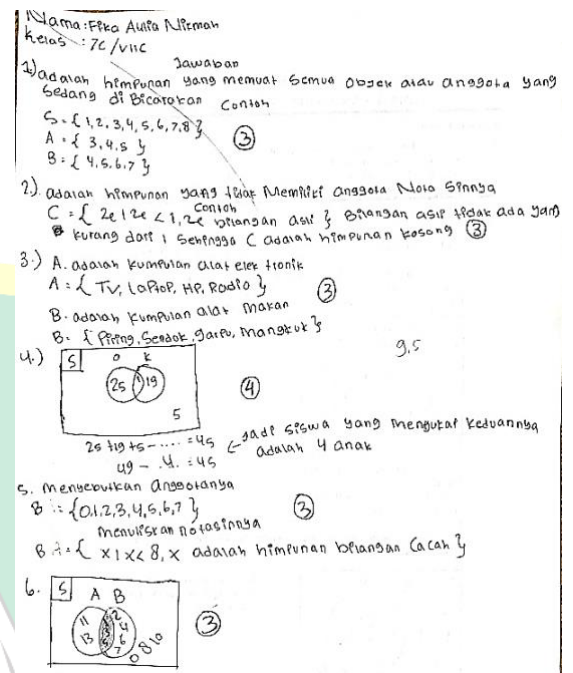 Nama: Fika Aulia Nirmah
Kelas : 7C/VIIC
Jawaban
1) adalah himpunan yang memuat semua objek atau anggota yang
sedang di Bicarakan Contoh
S = { 1, 2, 3, 4, 5, 6, 7, 8 }
A = { 3, 4, 5 }
B = { 4, 5, 6, 7 }
3
2). adalah himpunan yang tidak memiliki anggota
Contoh
C = { x | x < 1, x bilangan asli } Bilangan asli tidak ada yang
kurang dari 1 sehingga C adalah himpunan kosong 3
3.) A. adalah kumpulan alat elektronik
A = { TV, Laptop, HP, Radio } 3
B. adalah kumpulan alat makan
B = { Piring, Sendok, garpu, mangkuk }
9,5
4.) S O K
25 19
4
5
25 + 19 + 5 - ..... = 45
jadi siswa yang mengukai keduannya
49 - .4. = 45
adalah 4 anak
5. menyebutkan anggotanya
B = {0,1,2,3,4,5,6,7 } 3
menuliskan notasinnya
B = { x | x < 8, x adalah himpunan bilangan cacah }
6. S A B
11 13
2 4 6 7
0 8 10
3